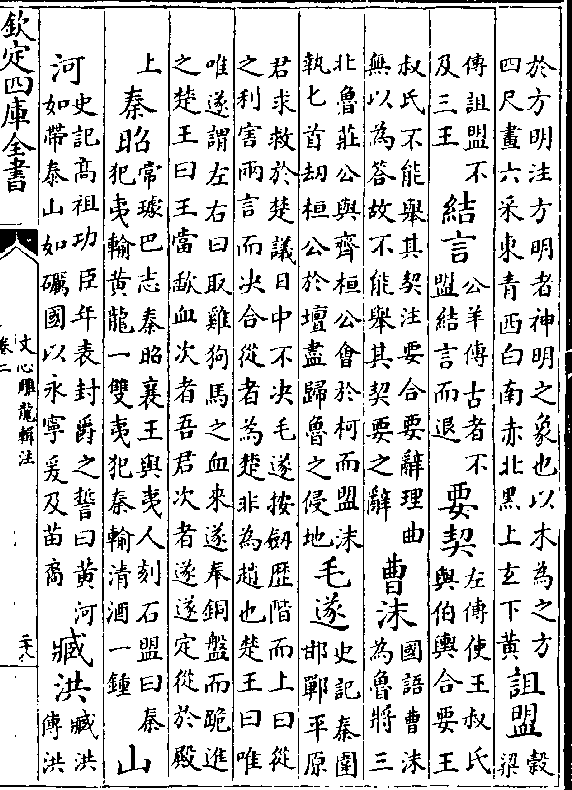 於方明注方明者神明之象也以木為之方
四尺畫六采東青西白南赤北黑上玄下黃
詛盟
榖
梁
傳詛盟不
及三王
結言
公羊傳古者不
盟結言而退
要契
左傳使王叔氏
與伯輿合要王
叔氏不能舉其契注要合要辭理曲
無以為答故不能舉其契要之辭
曹沫
國語曹沫
為魯將三
北魯莊公與齊桓公會於柯而盟沫
執匕首刼桓公於壇盡歸魯之侵地
毛遂
史記秦圍
邯鄲平原
君求救於楚議日中不决毛遂按劒歴階而上曰從
之利害兩言而决合從者為楚非為趙也楚王曰唯
唯遂謂左右曰取雞狗馬之血來遂奉銅盤而跪進
之楚王曰王當歃血次者吾君次者遂遂定從於殿
上
秦昭
常璩巴志秦昭襄王與夷人刻石盟曰秦
犯夷輸黃龍一雙夷犯秦輸清酒一鍾
山
河
史記髙祖功臣年表封爵之誓曰黃河
如帶泰山如礪國以永寧爰及苗裔
臧洪
臧洪
傳洪
欽定四庫全書
文心雕龍輯注
卷二
二十八